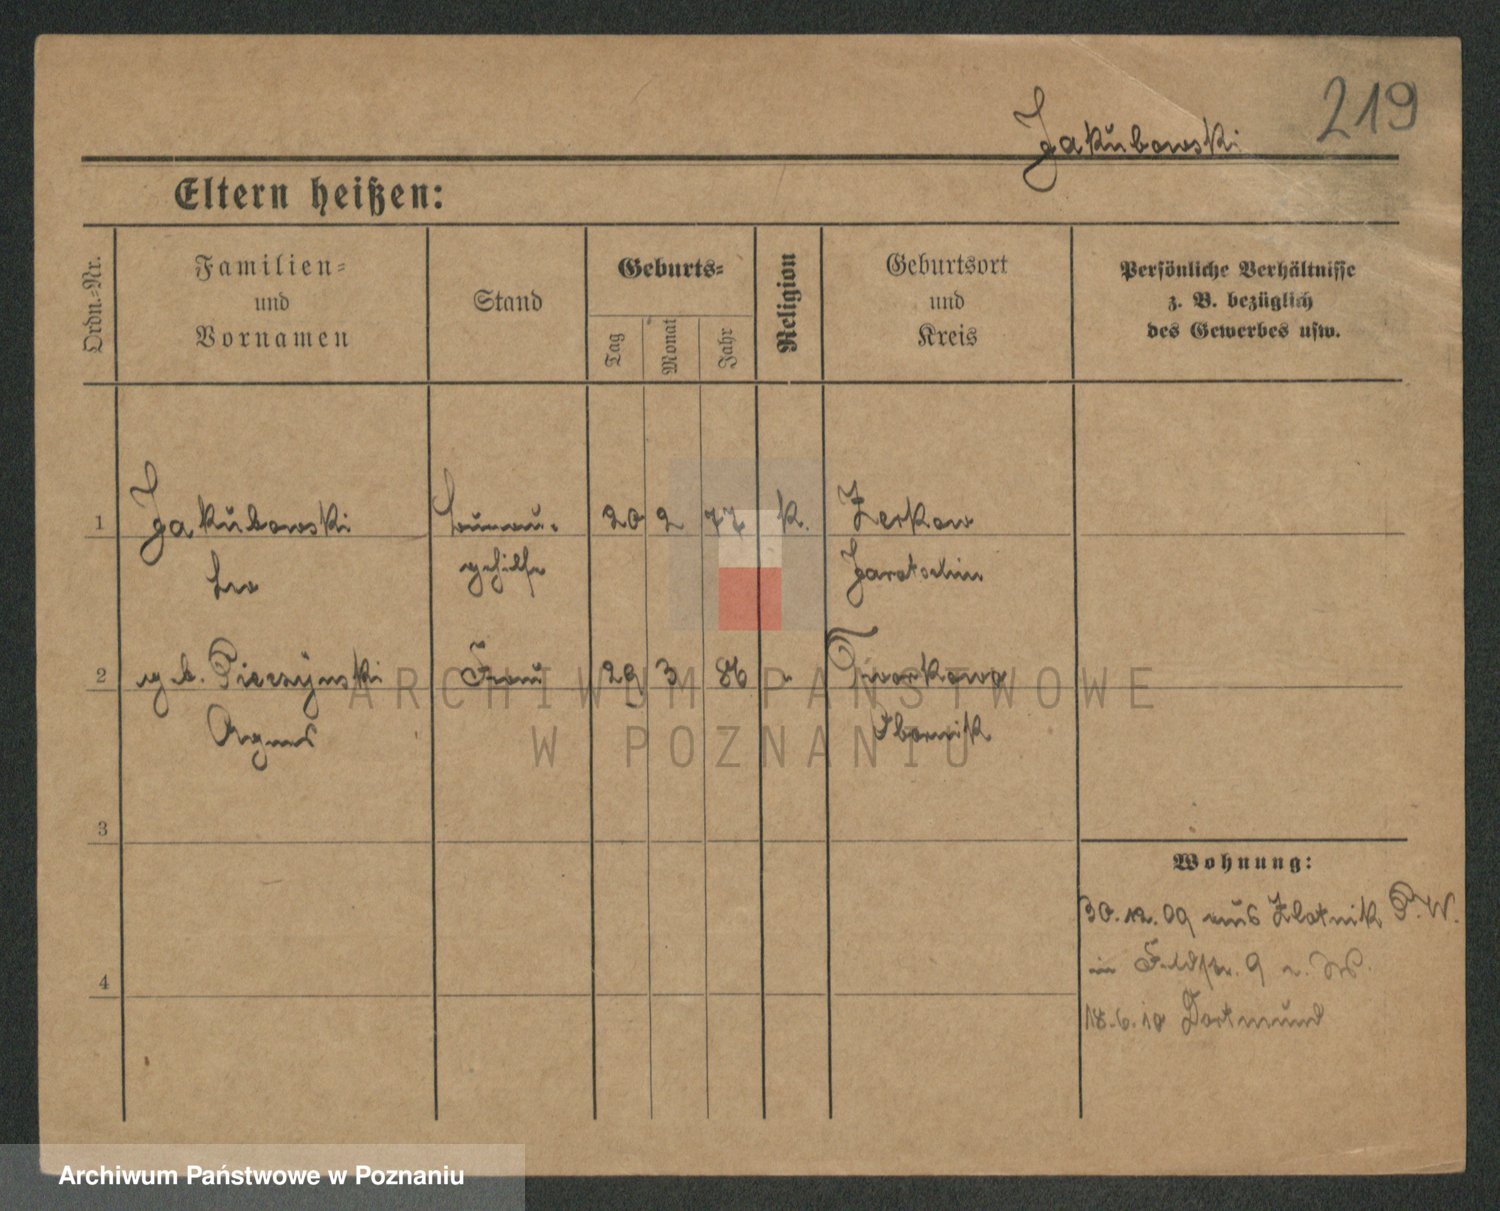 219
Jakubowski
Eltern heißen:
Ordn.-Nr.
Familien-
und
Vornamen
Stand
Geburts-
Tag
Monat
Jahr
Religion
Geburtsort
und
Kreis
Persönliche Verhältnisse
z. B. bezüglich
des Gewerbes usw.
1 Jakubowski 20 2 77 k. Zerkow
Leo gehilfe Jarotschin
2 geb. Pierzynski Frau 29 3 86 Tworkowo
Agnes Obornik
3
Wohnung:
30.12.09 aus Zlatnik P.W.
in Feldstr. 9
4
18.6.10 Dortmund
ARCHIWUM PAŃSTWOWE
W POZNANIU
Archiwum Państwowe w Poznaniu